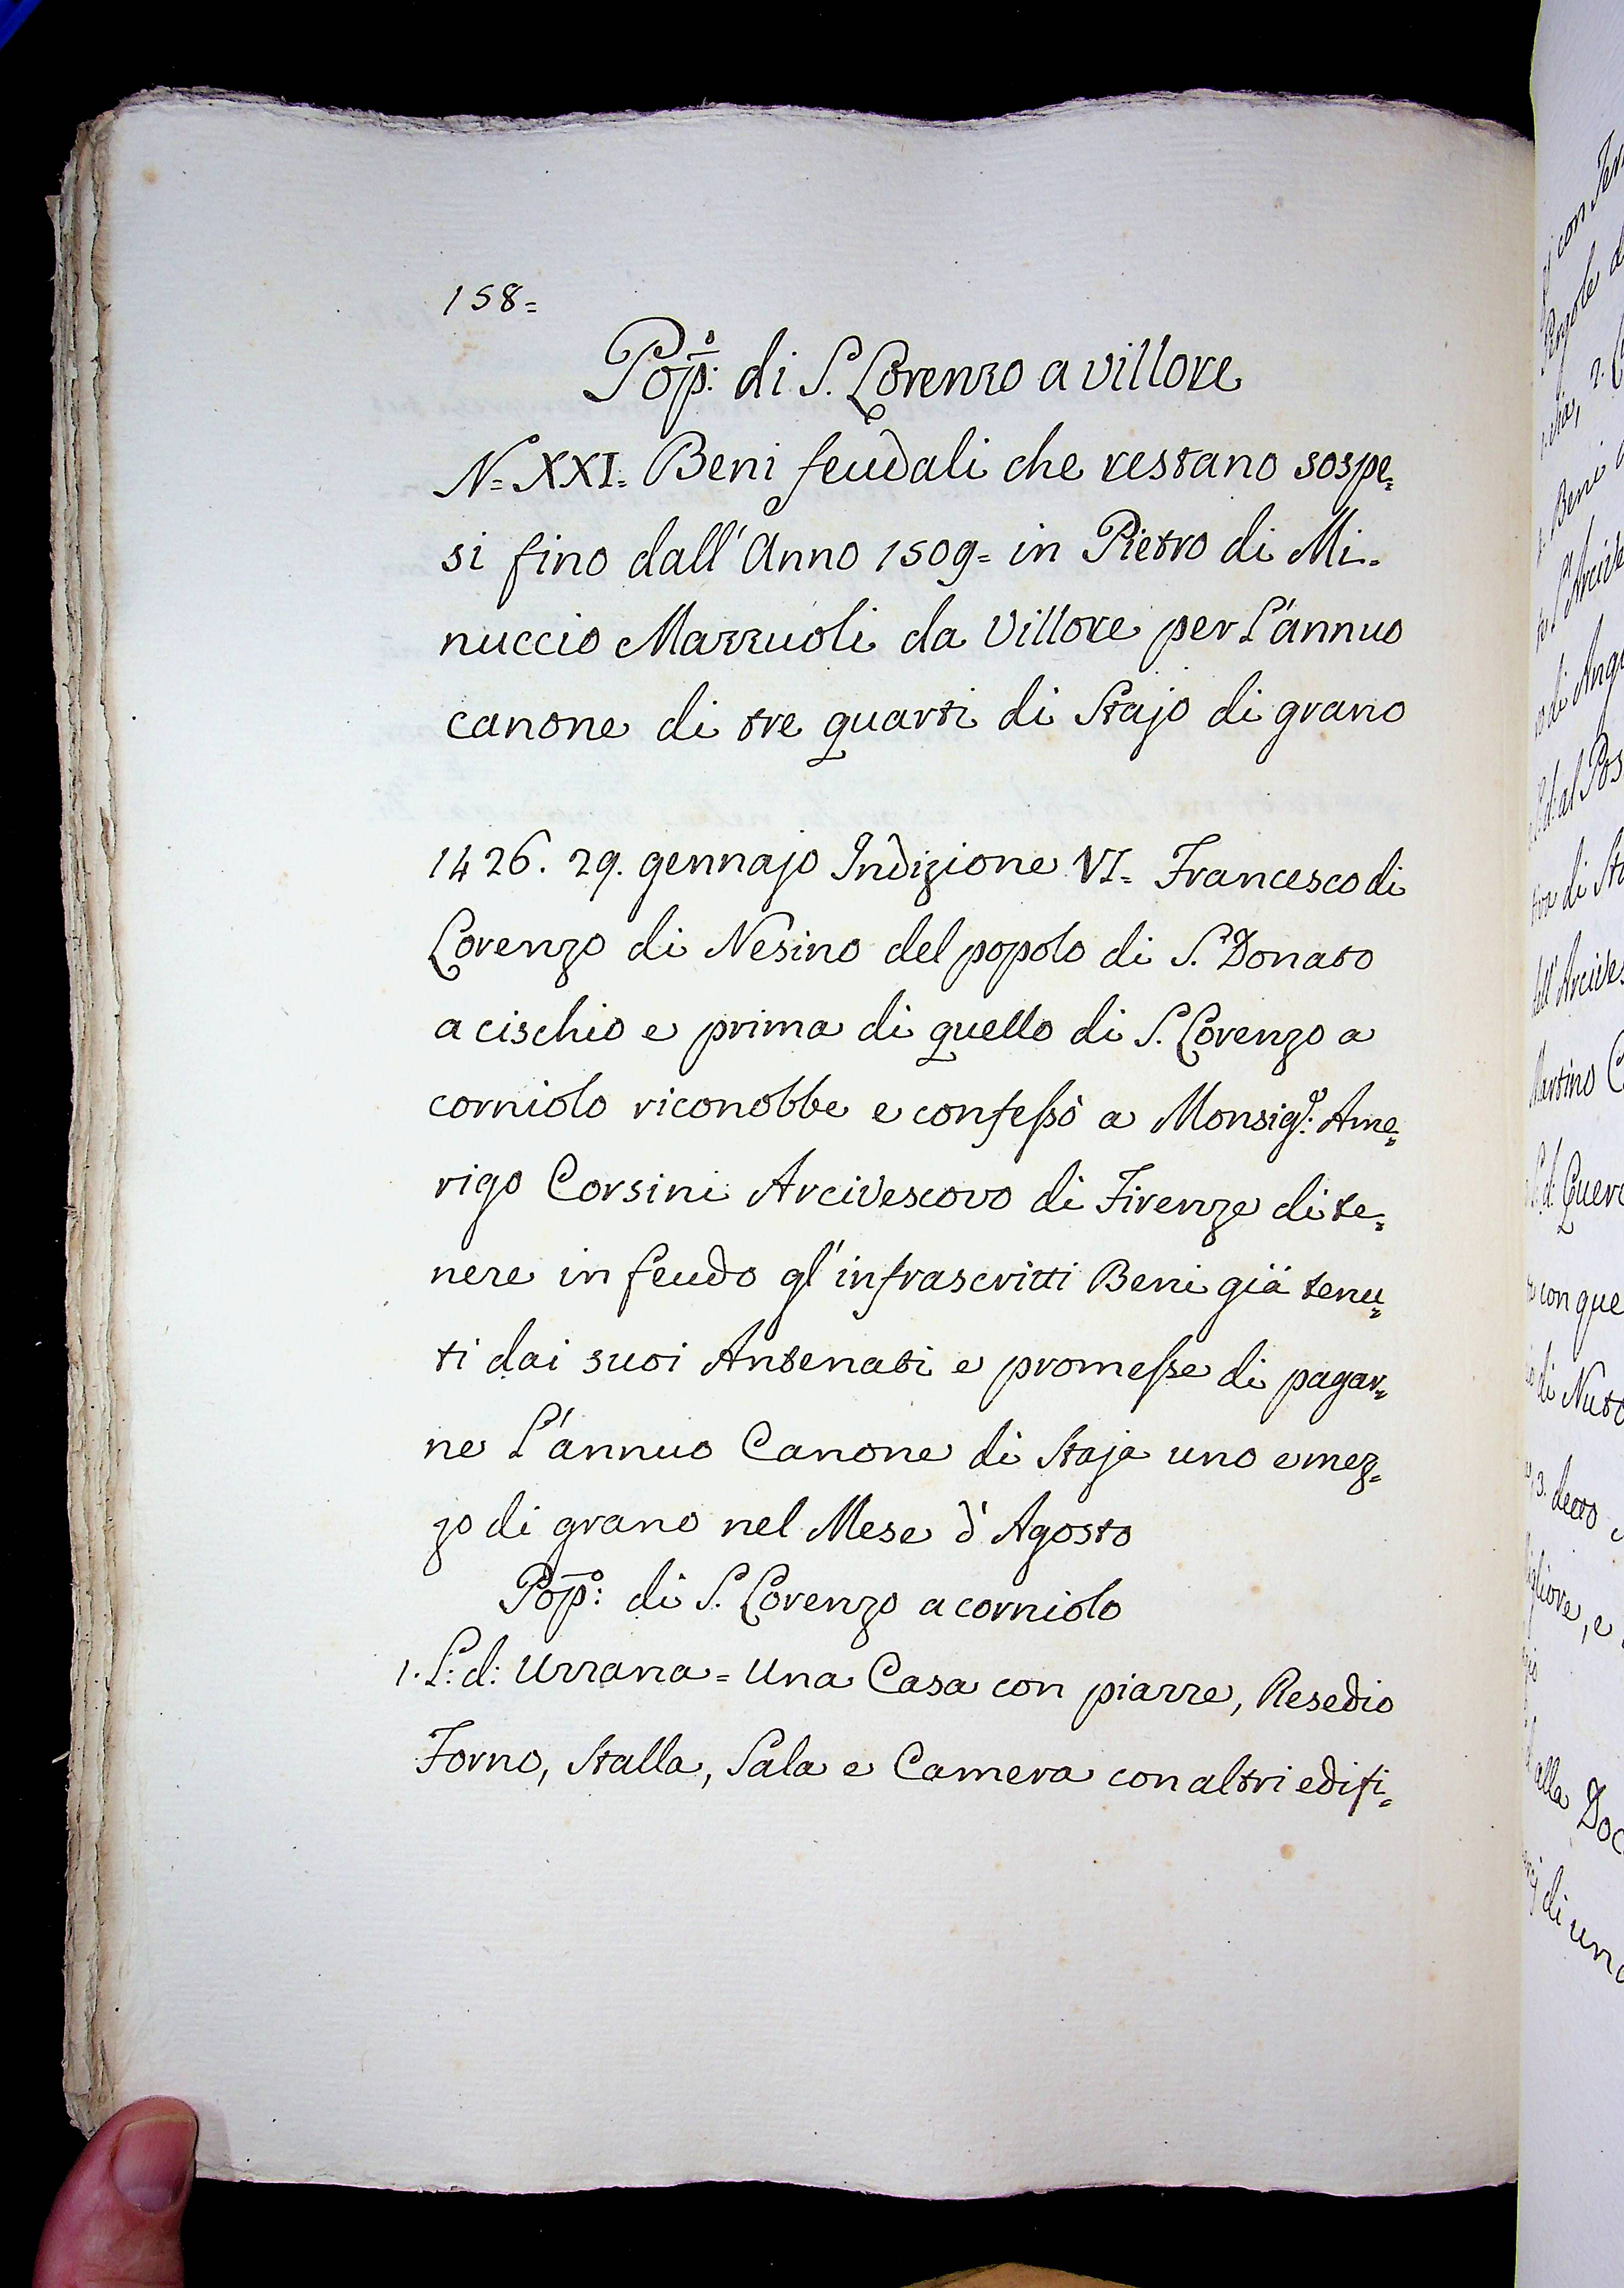 158=
Pop̄.º di S. Lorenzo a villore
N= XXI= Beni feudali che restano sospe=
si fino dall'Anno 1509= in Pietro di Mi=
nuccio Mazzuoli da Villore per L'annuo
canone di tre quarti di Stajo di grano
1426. 29. gennajo Indizione VI= Francesco di
Lorenzo di Nesino del popolo di S. Donato
a cischio e prima di quello di S. Lorenzo a
corniolo riconobbe e confeßò a Monsig.r: Ame=
rigo Corsini Arcivescovo di Firenze di te=
nere in feudo gl'infrascritti Beni già tenu=
ti dai suoi Antenati e promeße di pagar=
ne L'annuo Canone di Staja uno e mez=
zo di grano nel Mese d'Agosto
Pop̄º: di S. Lorenzo a corniolo
1. L: d: Uzzana = Una Casa con piazze, Resedio
Forno, Stalla, Sala e Camera con altri edifi=